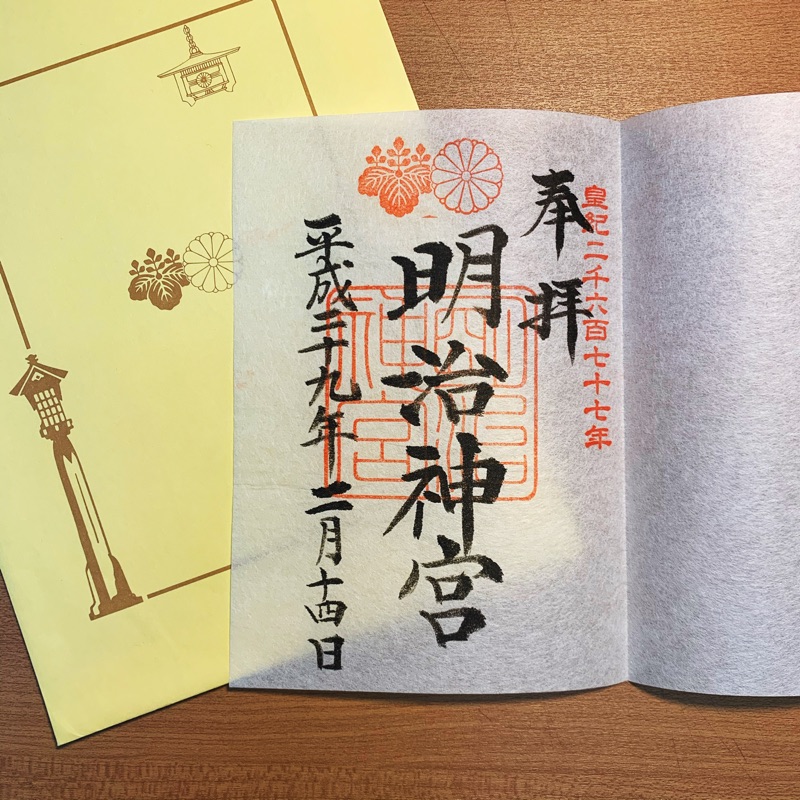 皇紀二千六百七十七年
奉拝
明治神宮
明治神宮
平成二十九年二月十四日